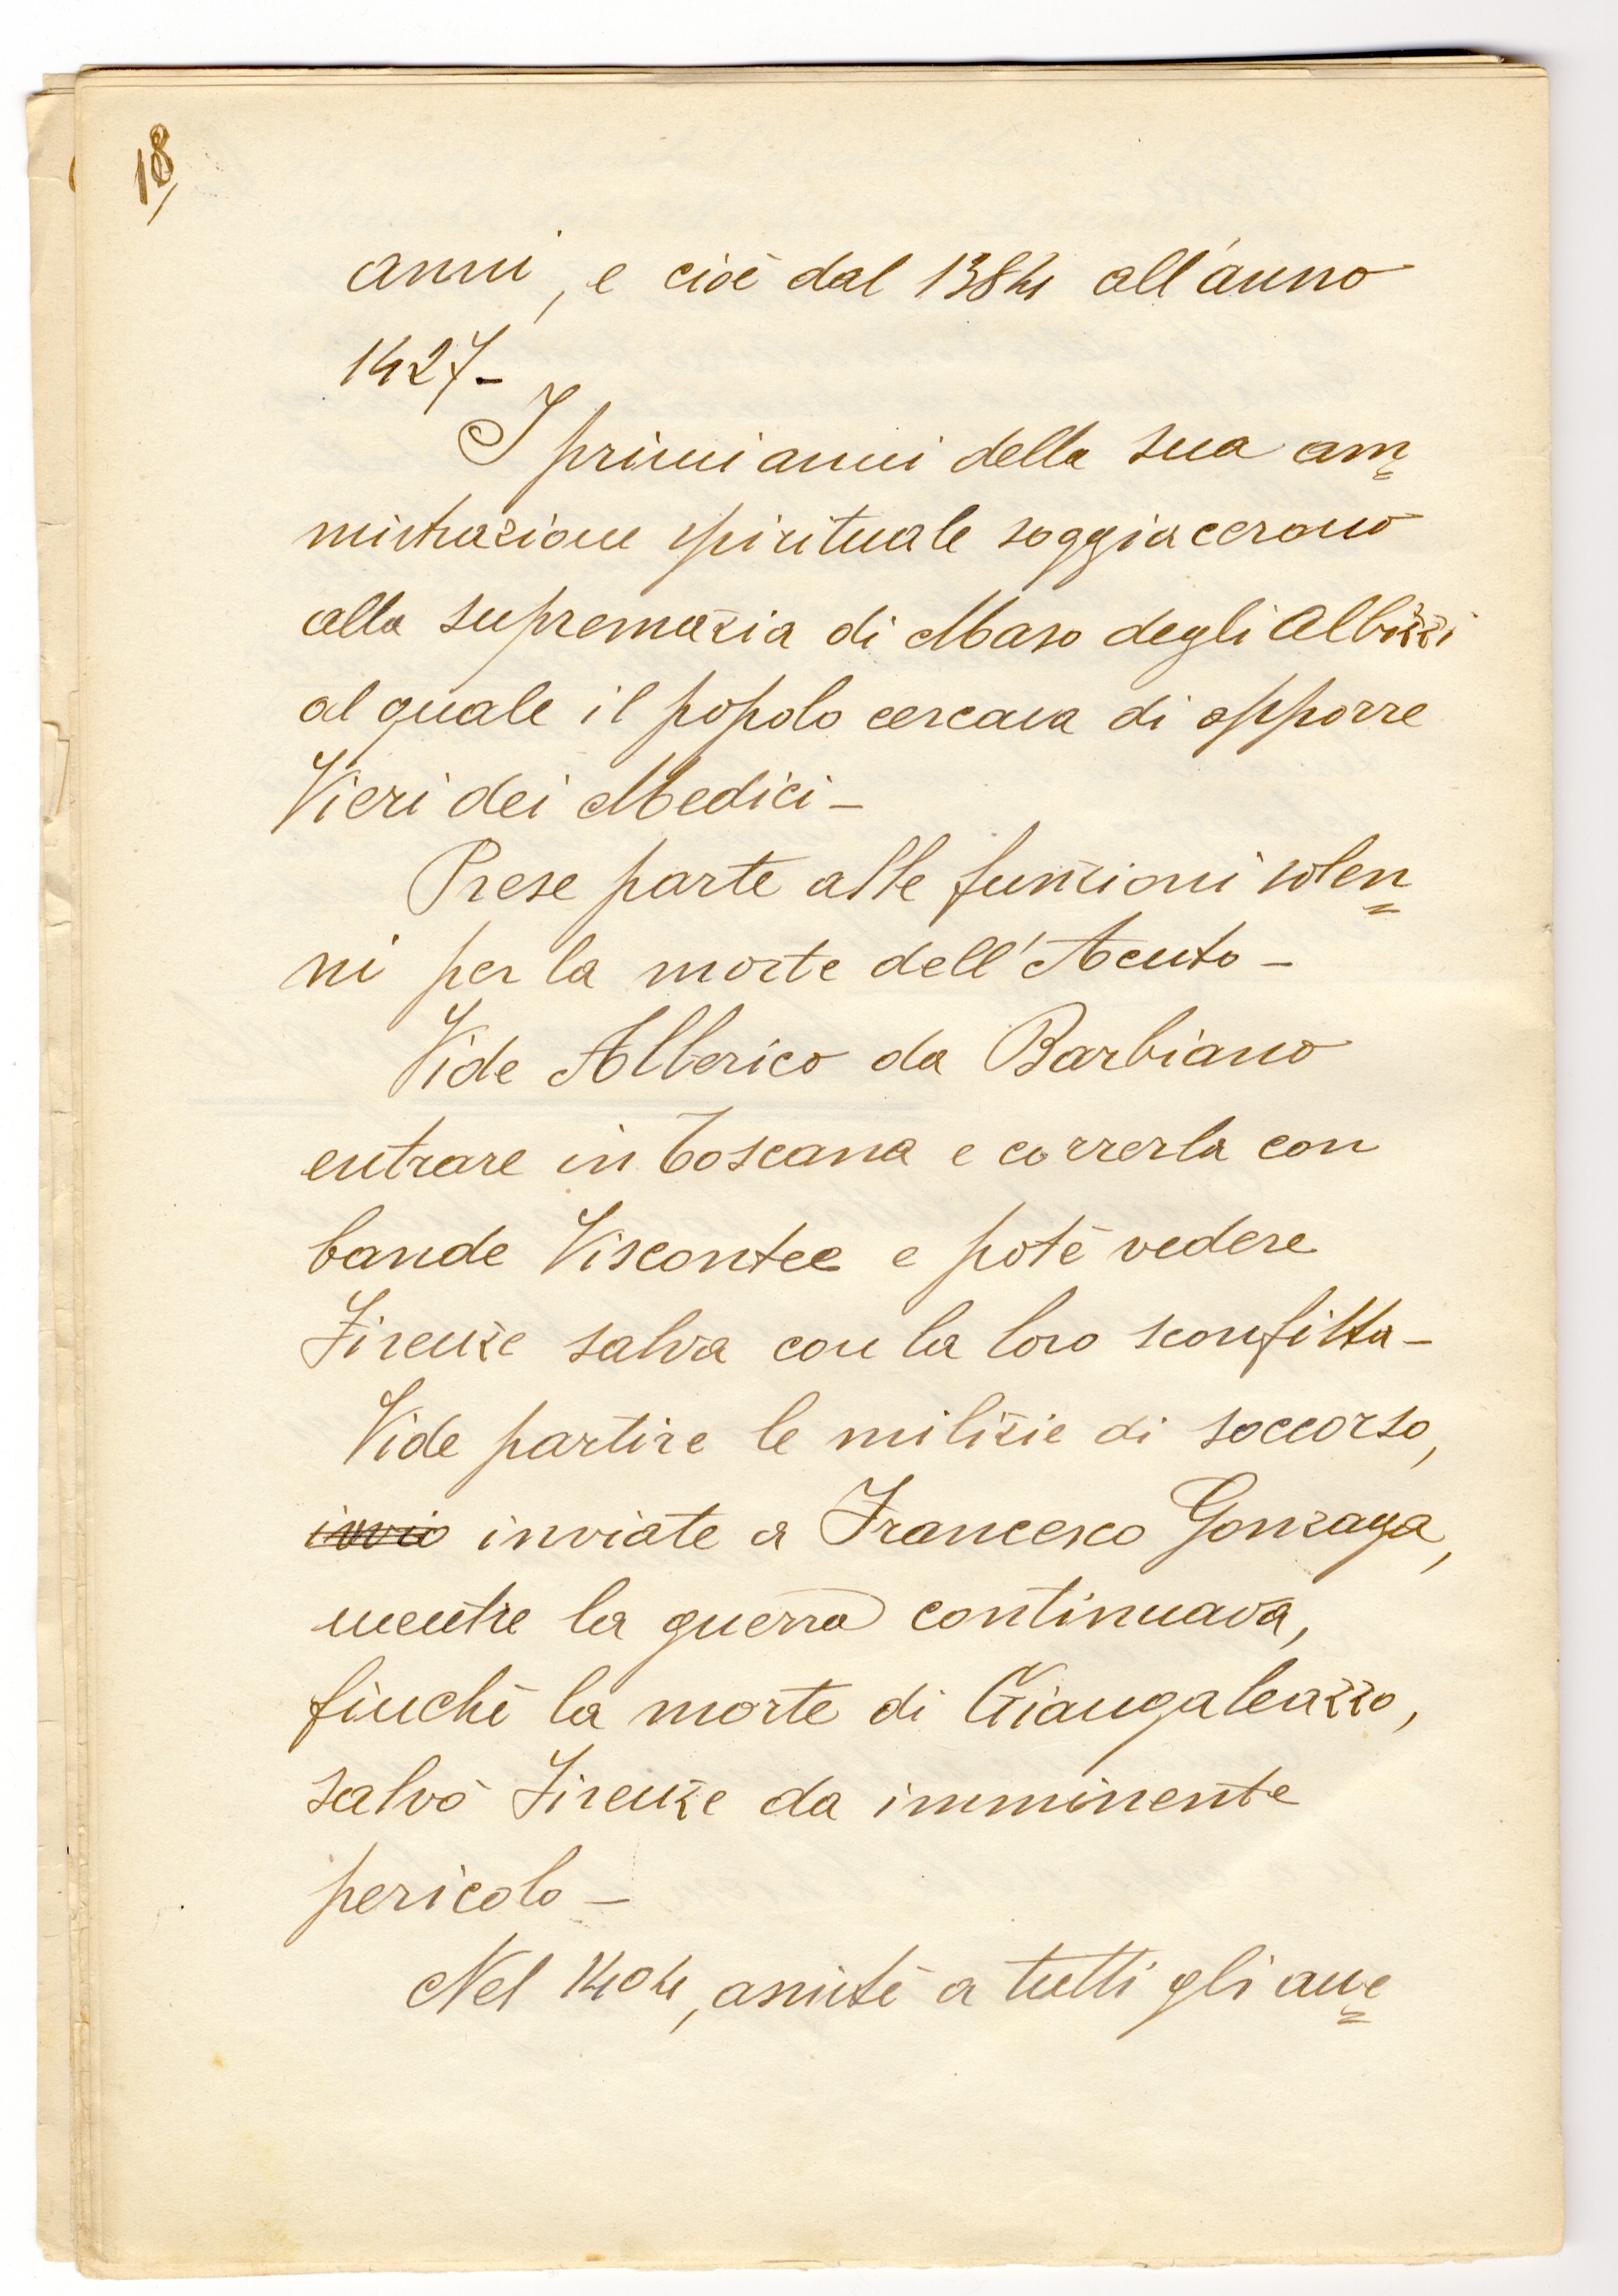 18
anni, e cioè dal 1384 all'anno
1427-
I primi anni della sua am=
mistrazione spirituale soggiacerono
alla supremazia di Maso degli Albizzi
al quale il popolo cercava di opporre
Vieri dei Medici -
Prese parte alle funzioni solen=
ni per la morte dell'Acuto -
Vide Alberico da Barbiano
entrare in Toscana e correrla con
bande Viscontee e potè vedere
Firenze salva con la loro sconfitta -
Vide partire le milizie di soccorso,
invio inviate a Francesco Gonzaga,
mentre la guerra continuava,
finchè la morte di Giangaleazzo,
salvò Firenze da imminente
pericolo -
Nel 1404, assistè a tutti gli avve=